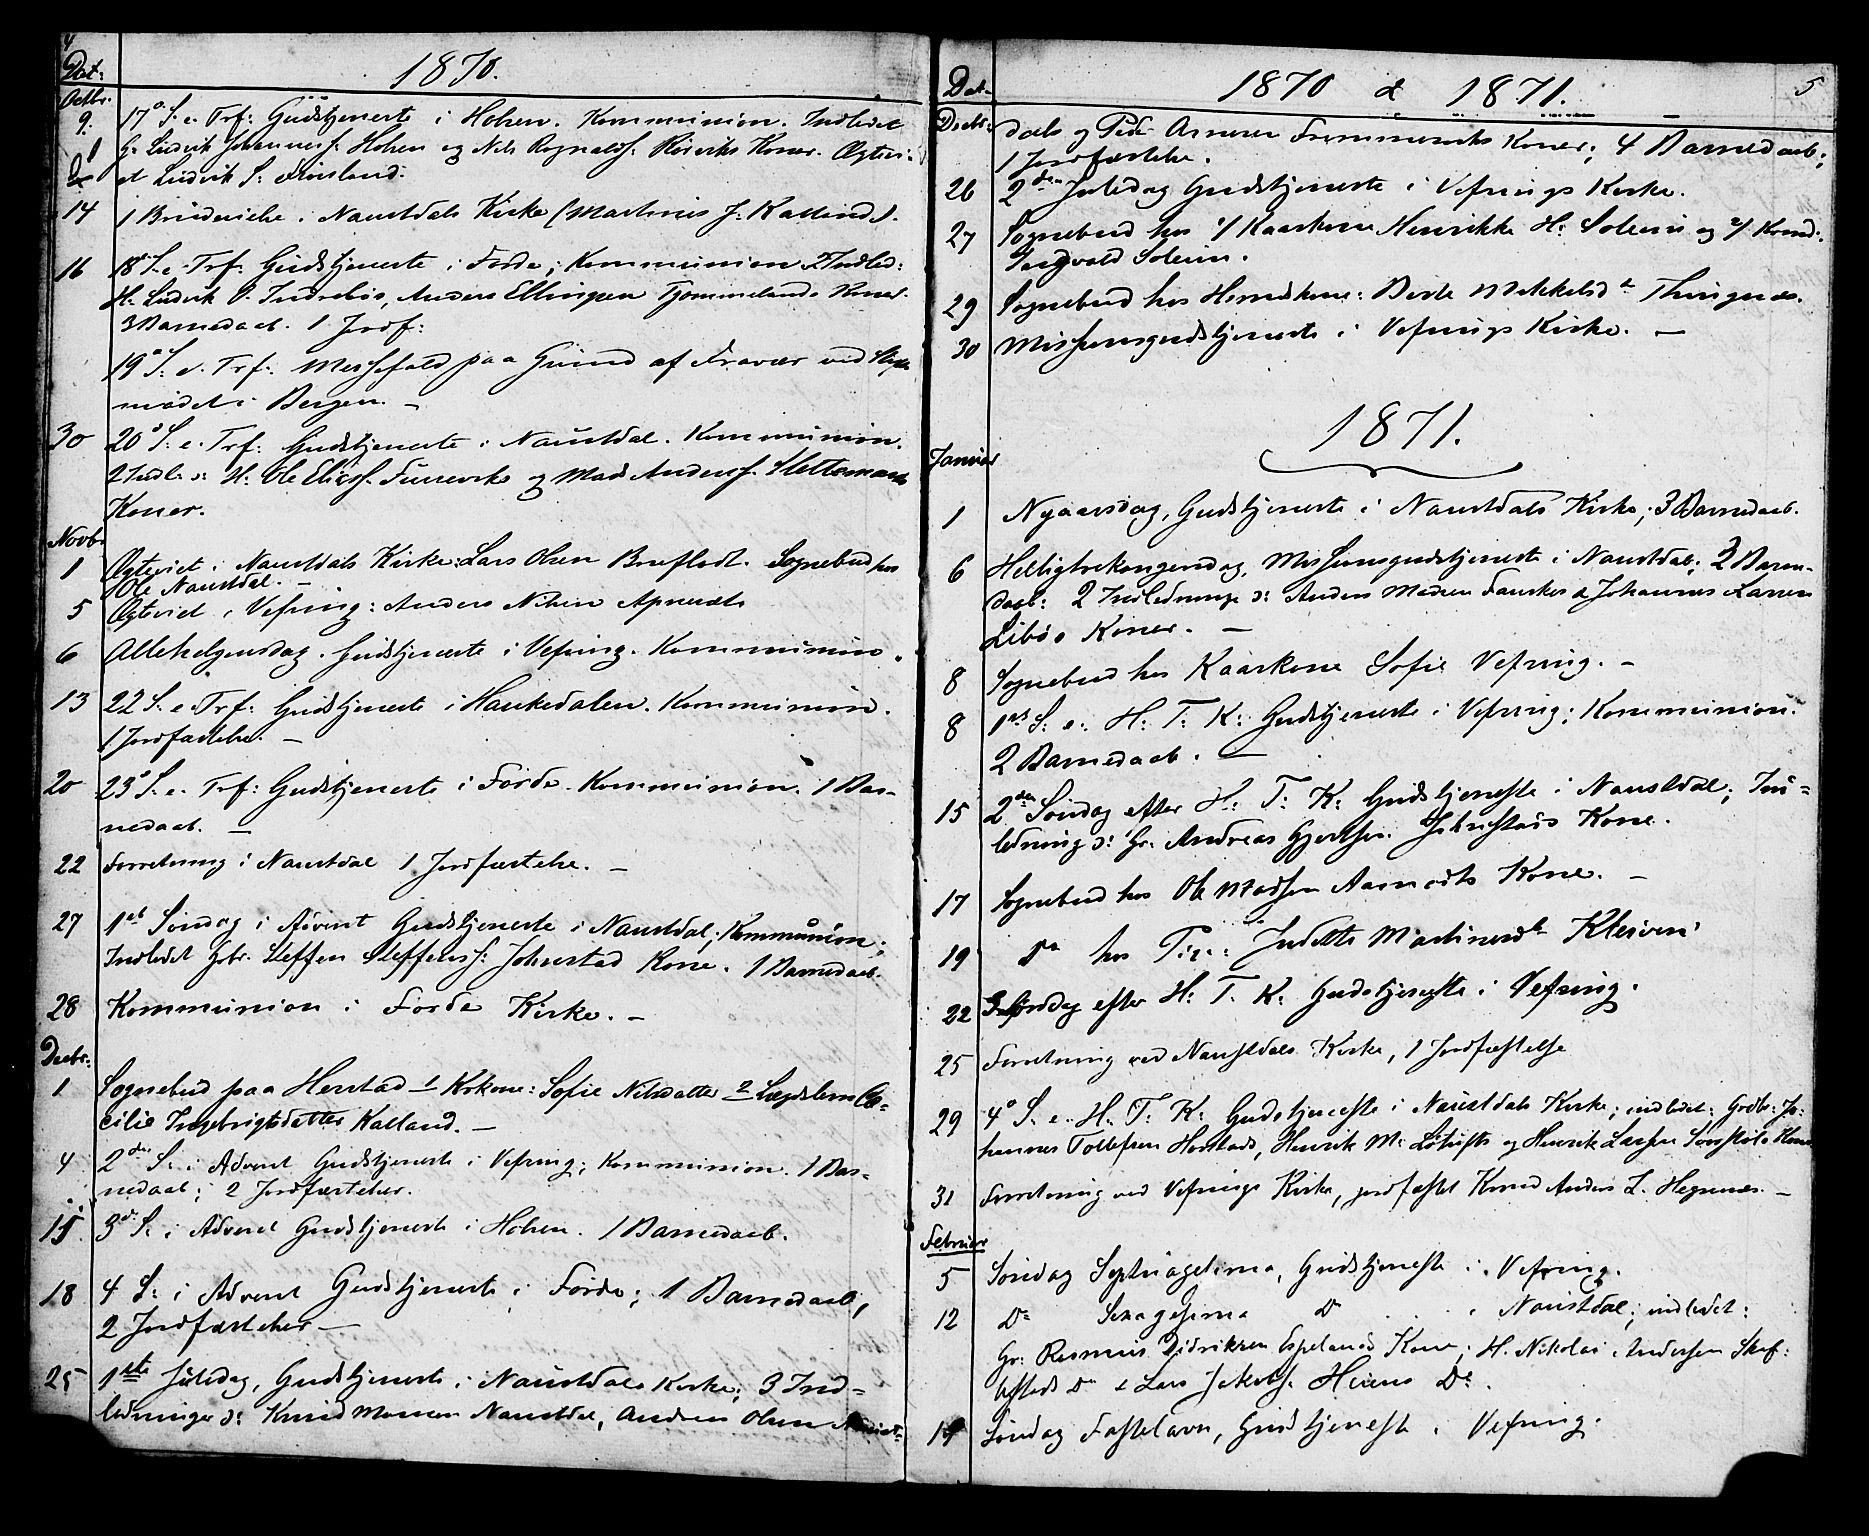 4
Dat:
1870.
Octbr.
9. 17° S. e. Trf: Gudstjeneste i Holsen. Kommunion. Indledet
Gr Ludvik Johannesf. Holsen og Nils Rognaldf. Koner. Ægtevi-
et Ludvik S:
14 1 Brudevielse i Naustdals Kirke (Martinus J: Kalland).
16 18° S. e. Trf: Gudstjeneste i Førde; Kommunion. 2 Indled:
H: Ludvik O. Indrebøs, Anders Ellingsen Tjommelands Koner.
3 Barnedaab. 1 Jordf:
19° S. e. Trf: Messefald paa Grund af Fravær ved
mødet i Bergen. –
30 20° S: e. Trf: Gudstjeneste i Naustdal. Kommunion.
2 Indl: ɔ: H: Ole Eliesf. Furreviks og Mads Andersf.
Koner.
Novb.
1 Ægteviet i Naustdals Kirke: Lars Olsen Bruflodt. Sognebud hos
Ole Naustdal. –
5 Ægteviet i Vefring: Anders Nilsen
6 Allehelgensdag. Gudstjeneste i Vefring. Kommunion.
13 22 S. e. Trf: Gudstjeneste i Haukedalen. Kommunion.
1 Jordfæstelse. –
20 23° S. e. Trf: Gudstjeneste i Førde. Kommunion. 1 Bar-
nedaab. –
22 Forretning i Naustdal 1 Jordfæstelse. –
27 1ste Søndag i Advent Gudstjeneste i Naustdal; Kommunion;
Indledet Gbr. Steffen Steffensf: Johnstad Kone. 1 Barnedaab.
28 Kommunion i Førde Kirke. –
Decbr:
1 Sognebud paa Herstad 1 Kårkone: Sofie Nilsdatter 2 Lægdslem Ce-
cilie Ingebrigtsdatter Kalland. –
4 2den S: i Advent Gudstjeneste i Vefring; Kommunion. 1 Bar-
nedaab; 2 Jordfæstelser.
15 3d S: i Advent Gudstjeneste i Holsen. 1 Barnedaab.
18 4 S: i Advent Gudstjeneste i Førde; 1 Barnedaab,
2 Jordfæstelser –
25 1ste Juledag, Gudstjeneste i Naustdals Kirke; 3 Ind-
ledninger ɔ: Knud Monsen Naustdal, Andreas Olsen
Dat.
1870 & 1871.
5
Decbr: dals og Peder Arnesen Frammarsviks Koner; 4 Barnedaab;
1 Jordfæstelse.
26 2den Juledag Gudstjeneste i Vefrings Kirke.
27 Sognebud hos 1/ Kaarkone Henrikke H: Soleim og 2/ Kond:
Soleim.
29 Sognebud hos Huuskone: Berte Mikkelsdtr
30 Missionsgudstjeneste i Vefrings Kirke. –
1871.
Januar
1 Nyaarsdag, Gudstjeneste i Naustdals Kirke; 3 Barnedaab.
6 Helligtrekongersdag, Missionsgudstjeneste i Naustdal; 2 Barne-
daab: 2 Indledninge ɔ: Anders Madsen Fauskes & Johannes Larsen
Libøs Koner. –
8 Sognebud hos Kaarkone Sofie Vefring. –
8 1ste S: e. H. T. K: Gudstjeneste i Vefring; Kommunion.
2 Barnedaab. –
15 2den Søndag efter H: T: K: Gudstjeneste i Naustdal; Ind-
ledning ɔ: Gr. Andreas Gjertsen Johnstads Kone.
17 Sognebud hos Ole Madsen Aamots Kone. –
19 Do hos Judith Martinusdtr Kleiven
22 3 Søndag efter H: T. K: Gudstjeneste i Vefring.
25 Forretning ved Naustdals Kirke, 1 Jordfæstelse
29 4° S. e. H. T. K: Gudstjeneste i Naustdals Kirke; indledet: Grdbr: Jo-
hannes Tollefsen Horstads, Henrik M: og Henrik Larsen
31 Forretning ved Vefrings Kirke, jordfæstet Knud Anders L. Hegrenes. –
Februar
5 Søndag Septuagesima, Gudstjeneste i Vefring.
12 Do Sexagesima Do i Naustdal; indledet:
Gr: Rasmus Didriksen Espelands Kone; H. Nikolai Andersen
Do & Lars Jakobf. Do.
19 Søndag Fastelavn, Gudstjeneste i Vefring.